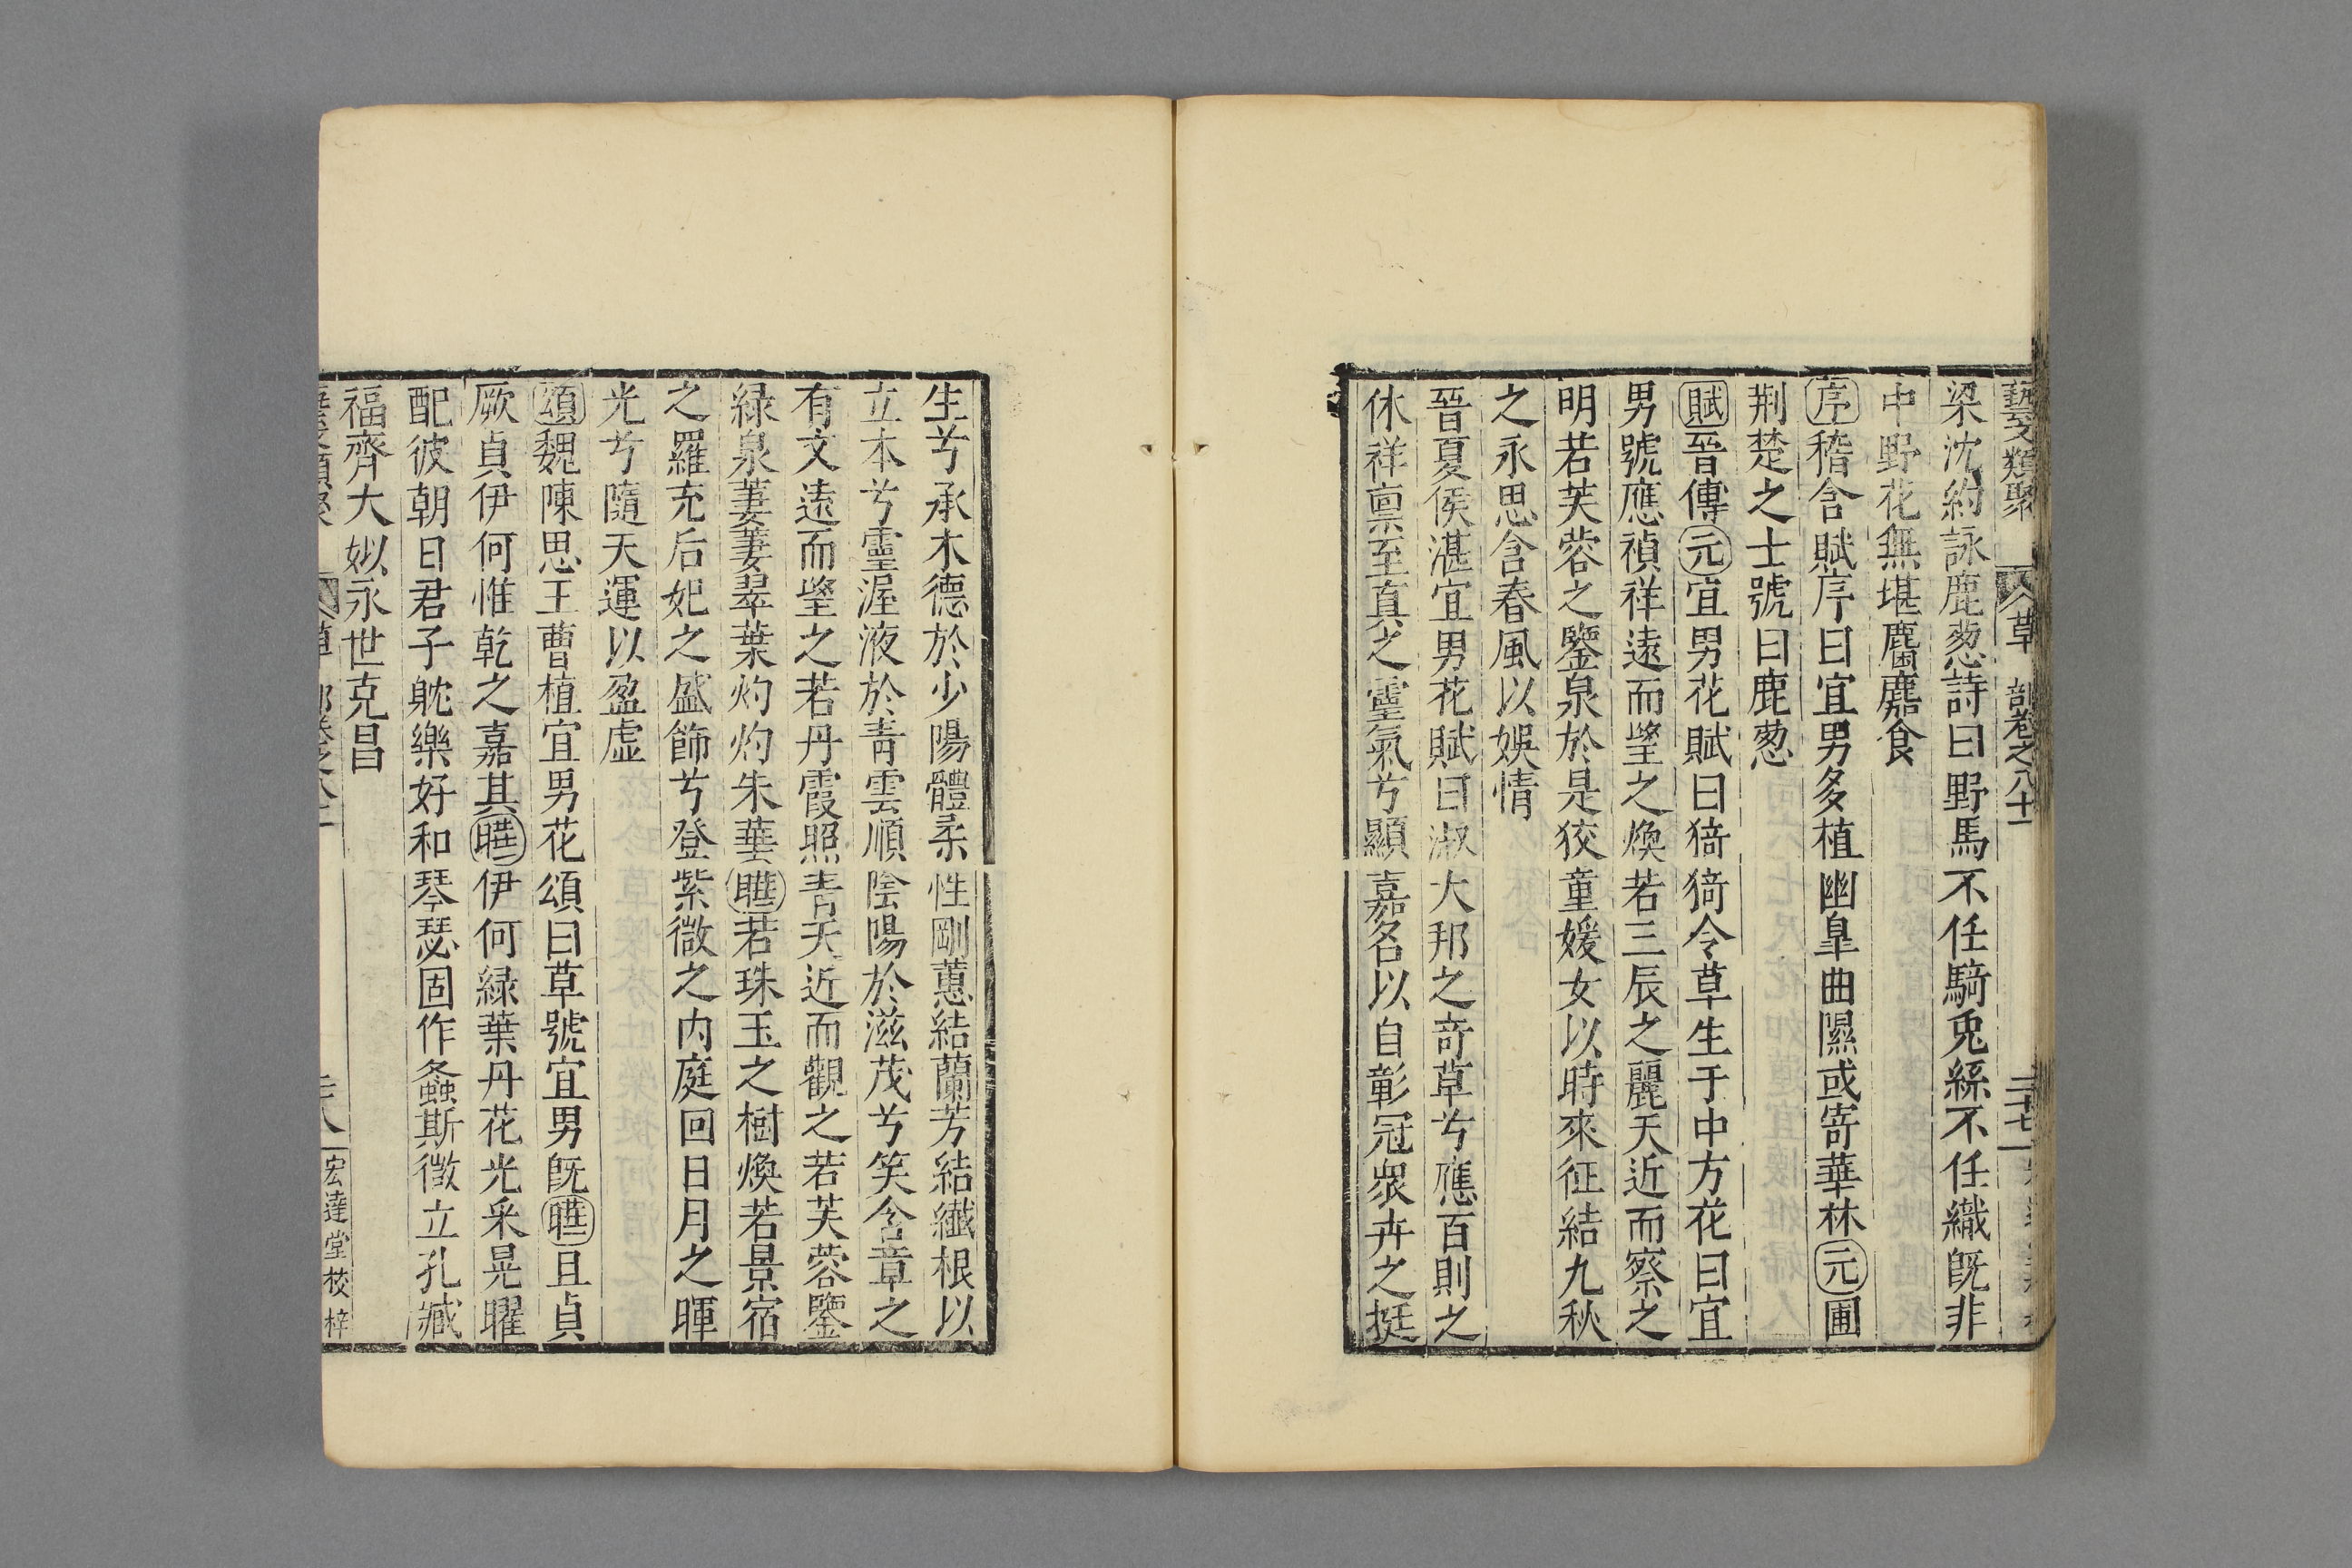 藝文類聚 草 部卷之八十一 二十七
梁沈約詠鹿葱詩曰野馬不任騎兎絲不任織旣非
中野花無堪麕麚食
序嵇含賦序曰宜男多植幽臯曲隰或寄華林元圃
荆楚之士號曰鹿葱
賦晉傅元宜男花賦曰猗猗令草生于中方花曰宜
男號應禎祥遠而望之煥若三辰之麗天近而察之
明若芙蓉之鑒泉於是狡童媛女以時來征結九秋
之永思含春風以娛情
晉夏侯湛宜男花賦曰淑大邦之竒草兮應百則之
休祥禀至貞之靈氣兮顯嘉名以自彰冠衆卉之挺
生兮承木德於少陽體柔性剛蕙結蘭芳結纎根以
立本兮靈渥液於青雲順陰陽於滋茂兮笑含章之
有文遠而望之若丹霞照青天近而觀之若芙蓉鑒
緑泉萋萋翠葉灼灼朱華曄若珠玉之樹煥若景宿
之羅充后妃之盛飾兮登紫微之内庭回日月之暉
光兮隨天運以盈虛
頌魏陳思王曹植宜男花頌曰草號宜男旣曄且貞
厥貞伊何惟乾之嘉其曄伊何緑葉丹花光采晃曜
配彼朝日君子躭樂好和琴瑟固作螽斯微立孔臧
福齊大姒永世克昌
宏達堂校梓